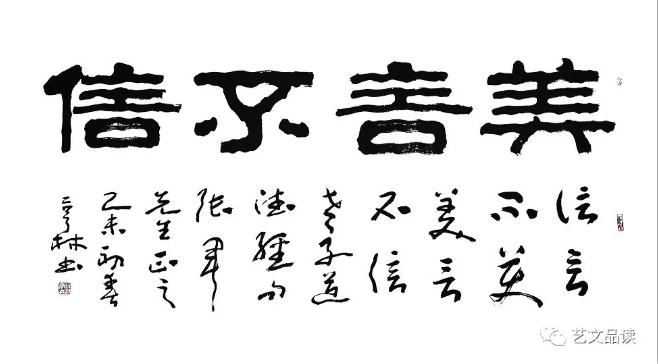 美言不信
信言
不美
美言
不信
老子道
德經句
張
先生正之
乙未初春
林书
艺文品读